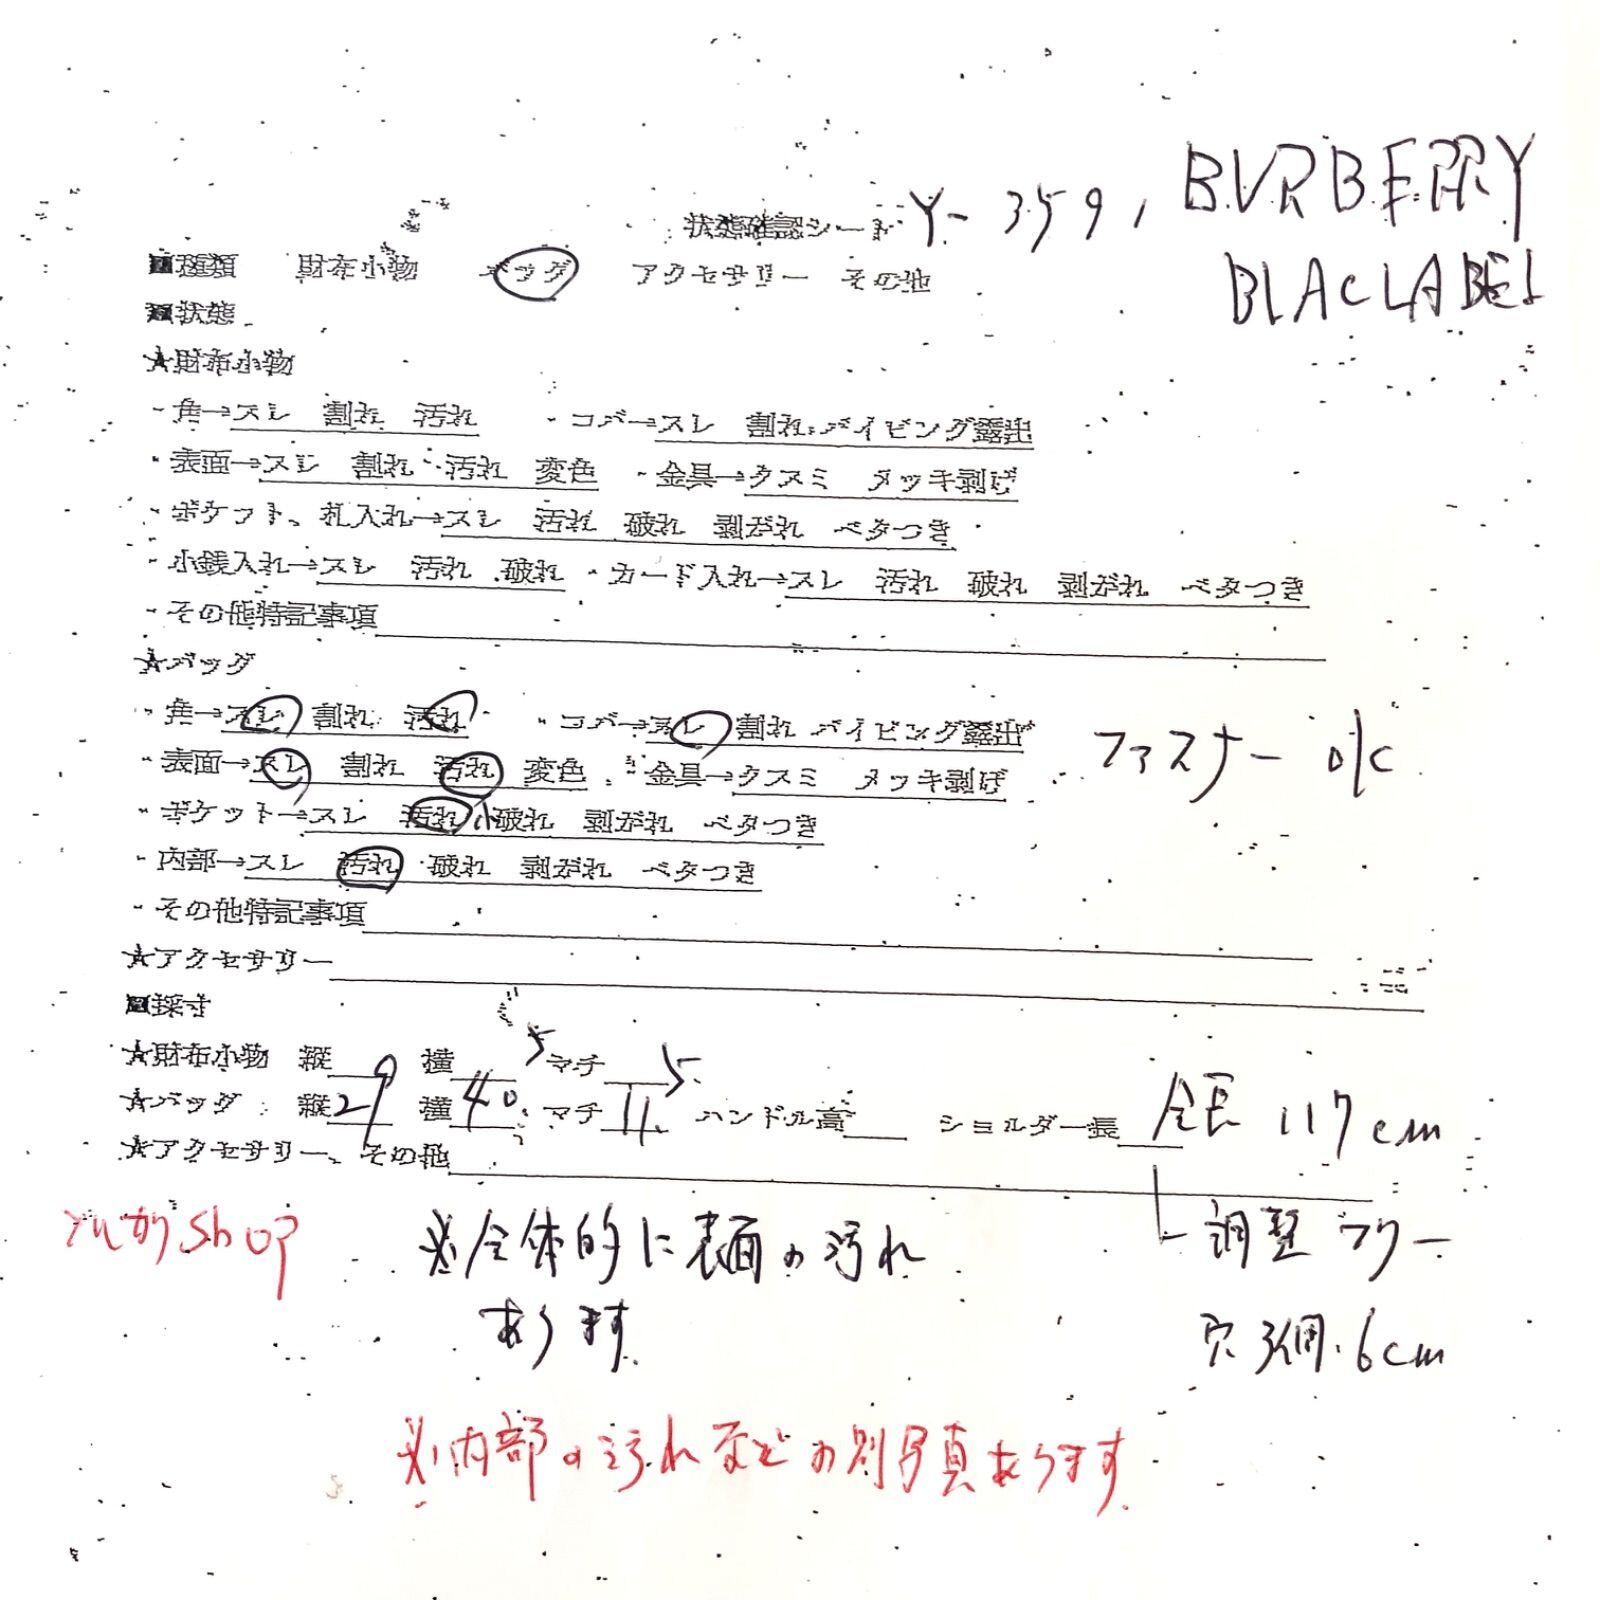 状態確認シート Y-359, BURBERRY
BLACLABEL
■種類 財布小物 バッグ アクセサリー その他
■状態
★財布小物
・角→スレ 割れ 汚れ ・コバ→スレ 割れ パイピング露出
・表面→スレ 割れ 汚れ 変色 ・金具→クスミ メッキ剥げ
・ポケット、札入れ→スレ 汚れ 破れ 剥がれ ベタつき
・小銭入れ→スレ 汚れ 破れ ・カード入れ→スレ 汚れ 破れ 剥がれ ベタつき
・その他特記事項
★バッグ
・角→スレ 割れ 汚れ ・コバ→スレ 割れ パイピング露出
・表面→スレ 割れ 汚れ 変色 ・金具→クスミ メッキ剥げ ファスナー ok
・ポケット→スレ 汚れ小 破れ 剥がれ ベタつき
・内部→スレ 汚れ 破れ 剥がれ ベタつき
・その他特記事項
★アクセサリー
■採寸
★財布小物 縦 横 マチ
★バッグ 縦29 横40.5 マチ11.5 ハンドル高 ショルダー長 全長 117cm
★アクセサリー、その他
調整フリー
shop ※全体的に表面の汚れ
あります
穴3個.6cm
※内部の汚れなどの別写真あります